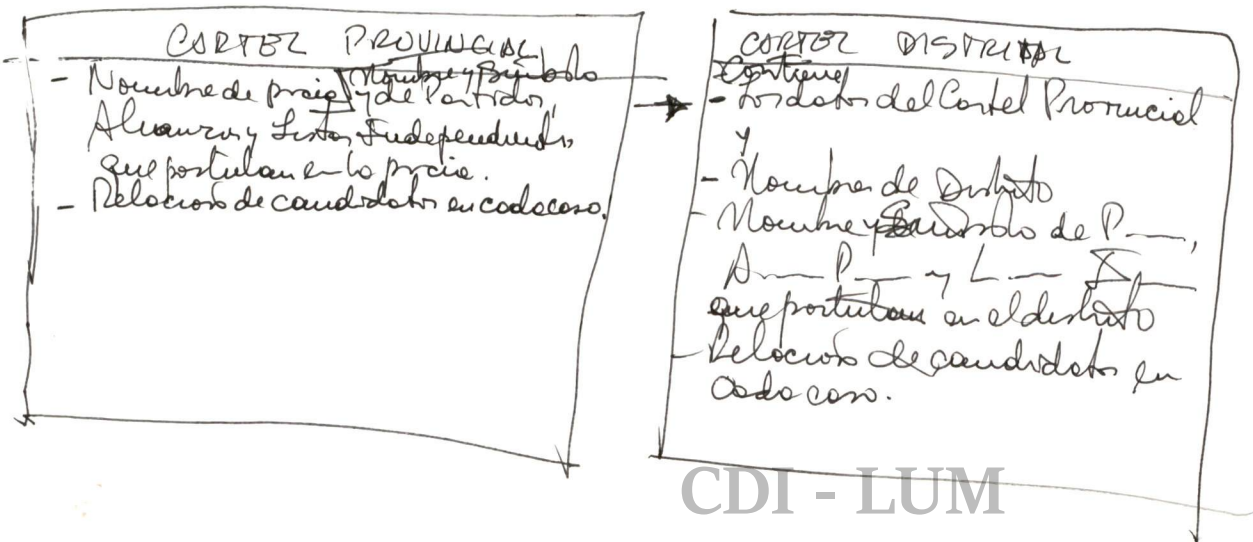 CARTEL PROVINCIAL
- Nombre de prcia Nombre y Símbolo
y de Partidos,
Alianzas y Listas Independientes
que postulan en la prcia.
- Relación de candidatos en cada caso.
CARTEL DISTRITAL
Contiene
- Los datos del Cartel Provincial
y
- Nombre de Distrito
- Nombre y Símbolo de P—,
A— P— y L— I—
que postulan en el distrito
- Relación de candidatos en
cada caso.
CDI - LUM